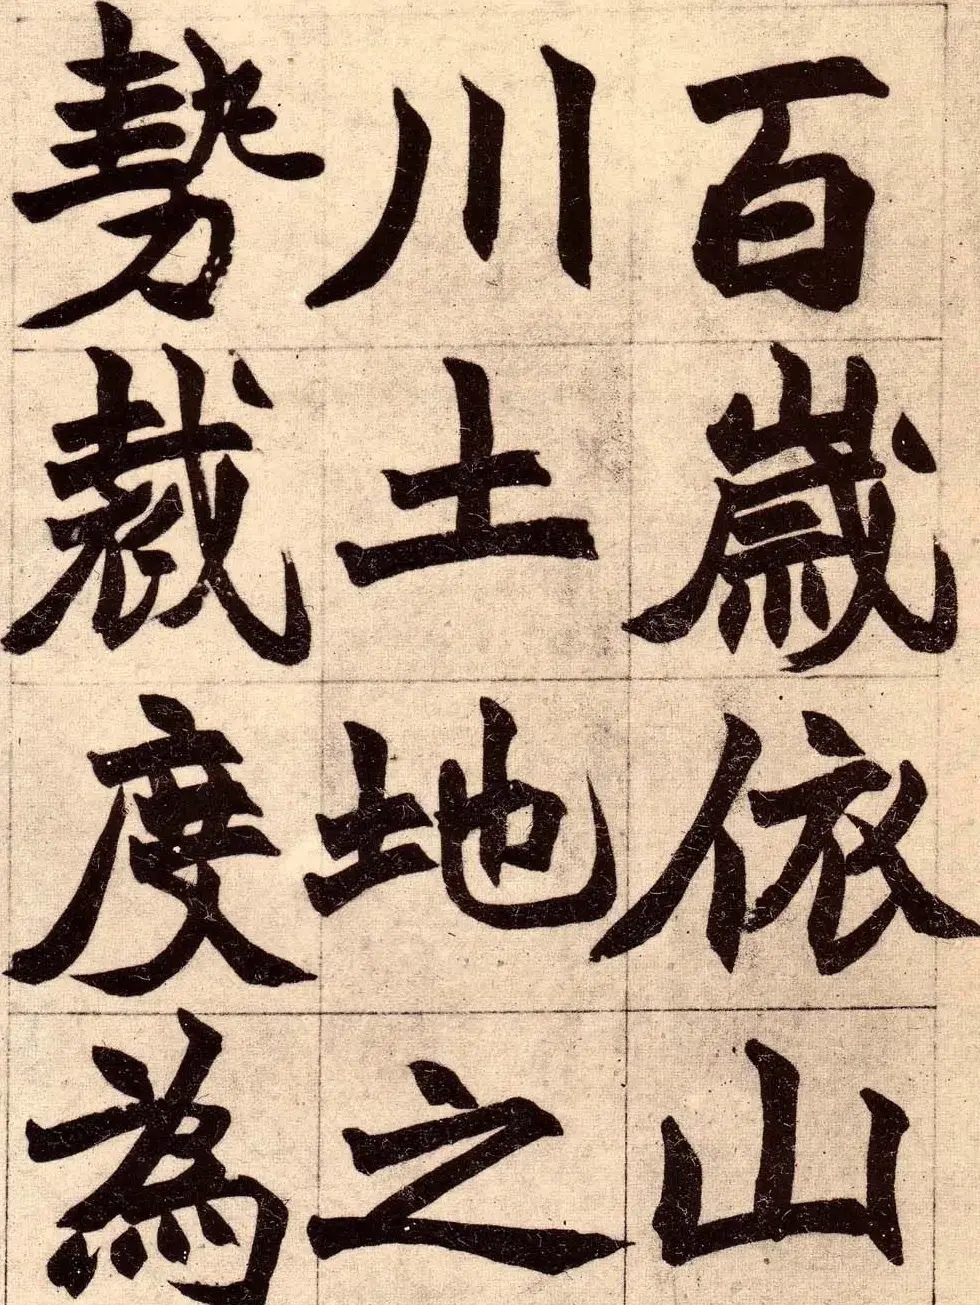 百歲依山
川土地之
勢裁度為